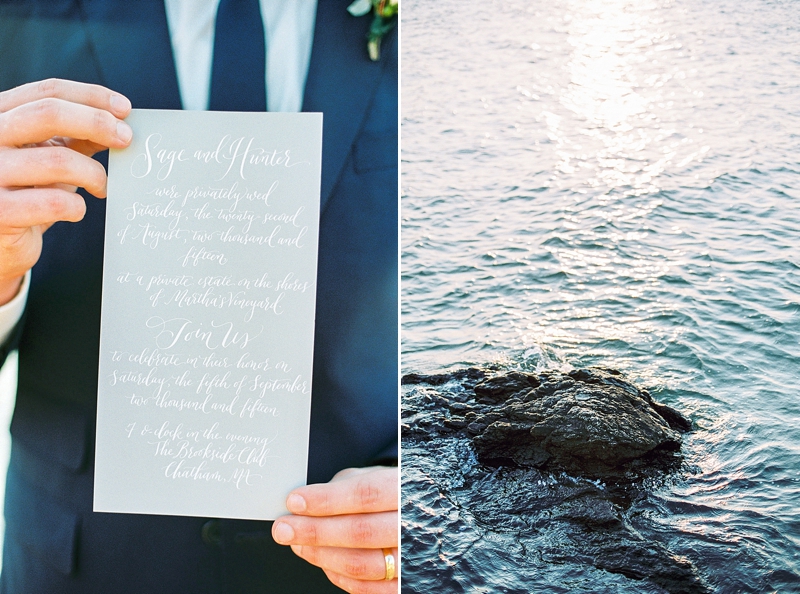 Sage and Hunter
were privately wed
Saturday, the twenty-second
of August, two thousand and
fifteen
at a private estate on the shores
of Martha's Vineyard
Join Us
to celebrate in their honor on
Saturday, the fifth of September
two thousand and fifteen
7 o-clock in the evening
The Brookside Club
Chatham, MA